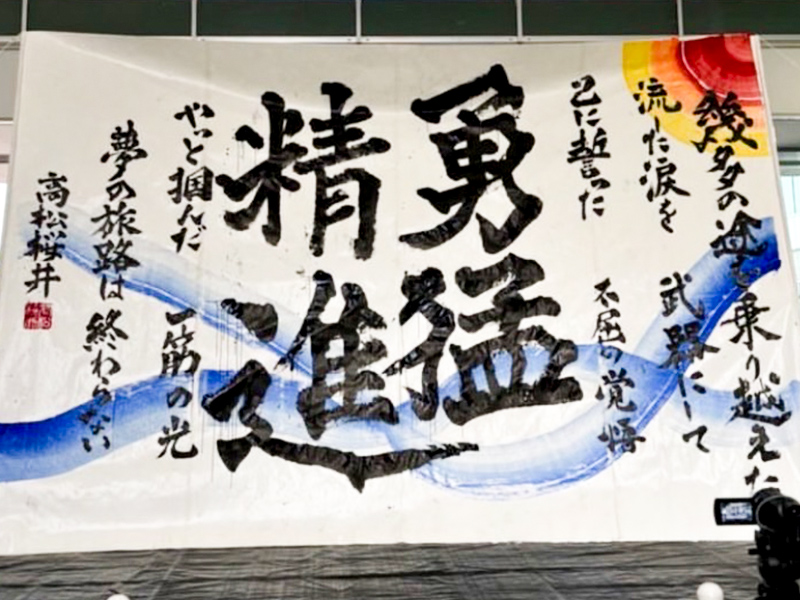 幾多の途を乗り越えた
流した涙を 武器にして
己に誓った 不屈の覚悟
勇猛
精進
やっと掴んだ 一筋の光
夢の旅路は 終わらない
高松桜井